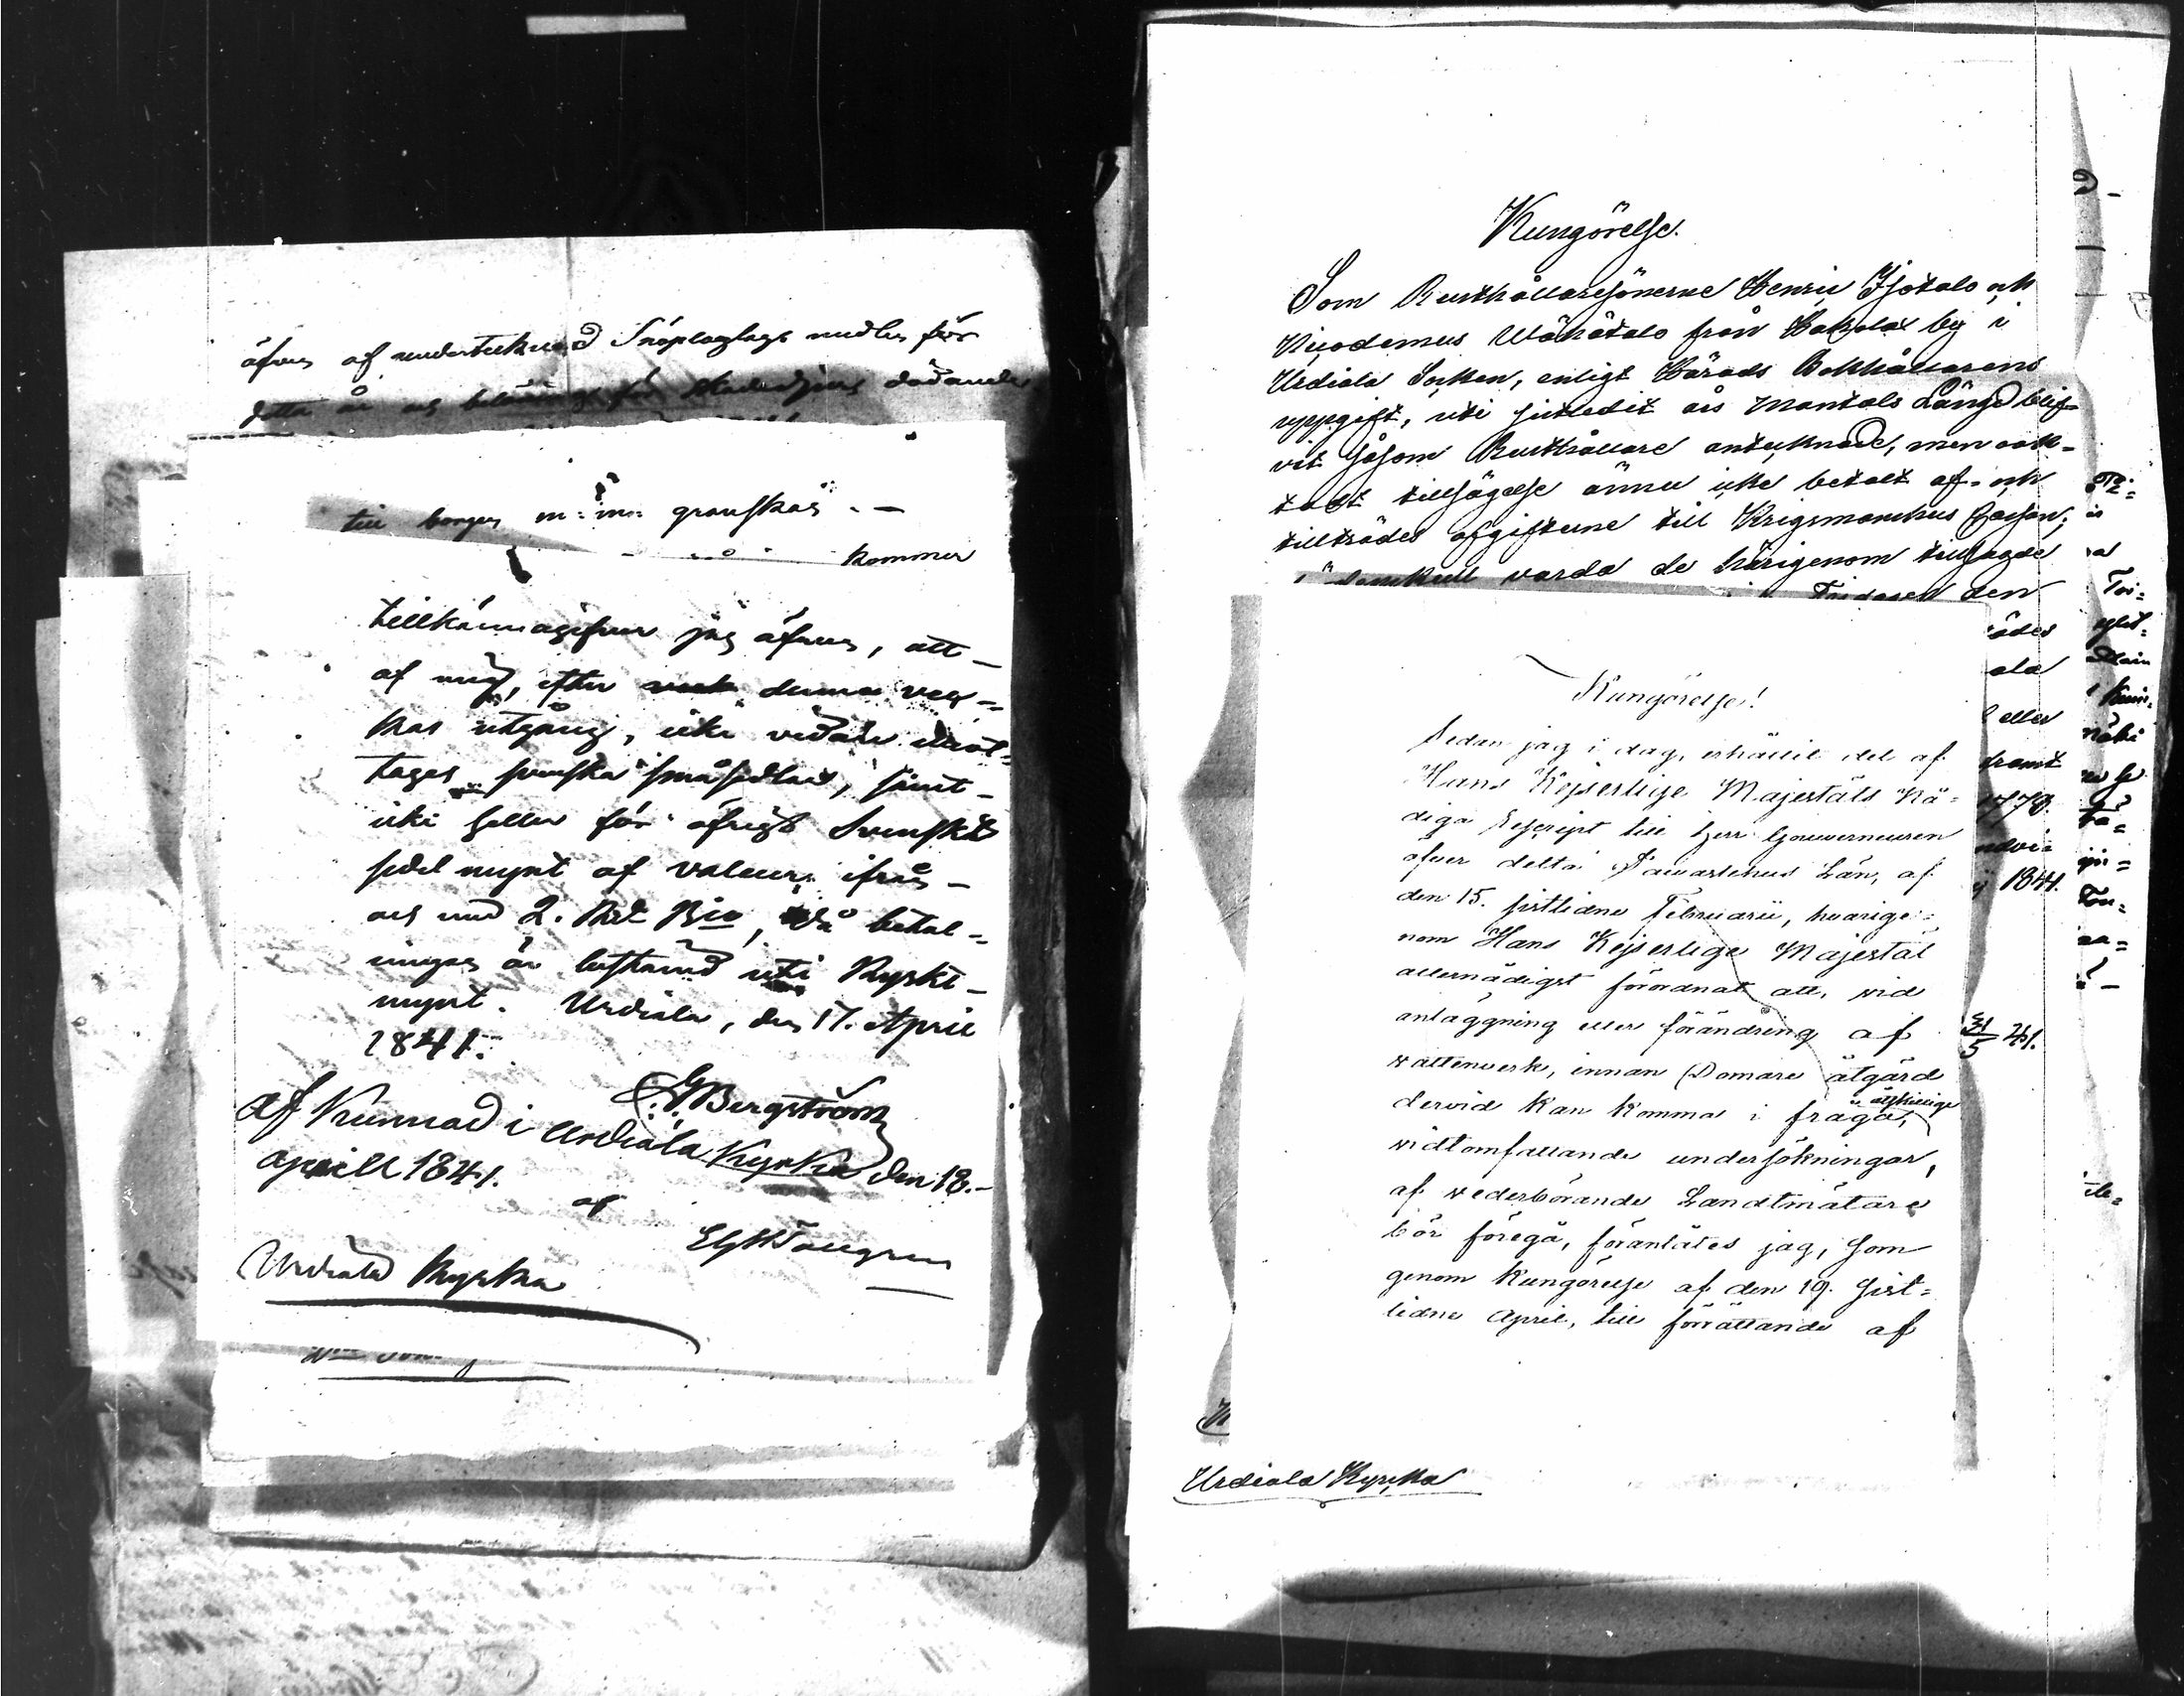 äfven af undertecknad Snöplaglags medlen för
detta år och
till borgen m: m: granskas . —
kommer
tillkännagifver jag äfven, att —
af mig, efter denna vec=
kas utgång, icke vidare emot=
tages svenska småsedlar, samt —
icke heller för öfrigt Svenskt
sedel mynt af valeur ifrån —
och med 2. Rd Bco, då betal=
ningen är bestämd uti Ryskt —
mynt. Urdiala, den 17. April
1841.
Bergström
af Kunnad i Urdiala Kyrka den 18. —
aprill 1841.
af
Urdiala Kyrka
Kungörelse.
Som Rusthållaresönerne Henric Isotalo och
Nicodemus Wähätalo från Hakolax by i
Urdiala Socken, enligt Härads Bokhållarens
uppgift, uti sistledit års Mantals Längd blif=
vit såsom Rusthållare antecknade, men oak=
tadt tillsägelse ännu icke betalt af- och
tillträdes afgifterne till Krigsmanshus Cassan;
varda de härigenom tillsagde
Fridagen den
ädes
ala
eller
framt
1778.
1841.
31/5 41.
Kungörelse!
Sedan jag i dag, erhållit del af
Hans Kejserlige Majestäts Nå=
diga Rescript till Herr Gouverneuren
öfver detta Tawastehus Län, af
den 15. sistlidne Februarii, hvarige=
nom Hans Kejserlige Majestät
allernådigst förordnat att, vid
anläggning eller förändring af
vattenverk, innan Domare åtgärd
dervid kan komma i fråga,
åtskillige
vidtomfattande undersökningar,
af vederbörande Landtmätare
bör föregå, förantåtes jag, som
genom Kungörelse af den 19. sist=
lidne April, till förrättande af
Urdiala Kyrka